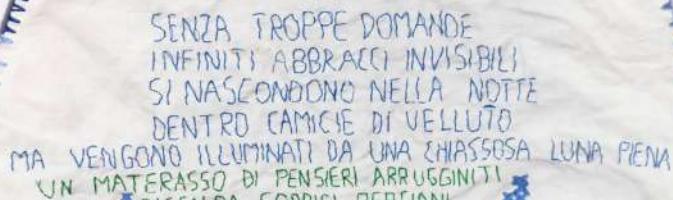 SENZA TROPPE DOMANDE
INFINITI ABBRACCI INVISIBILI
SI NASCONDONO NELLA NOTTE
DENTRO CAMICIE DI VELLUTO
MA VENGONO ILLUMINATI DA UNA CHIASSOSA LUNA PIENA
UN MATERASSO DI PENSIERI ARRUGGINITI
SORRISI